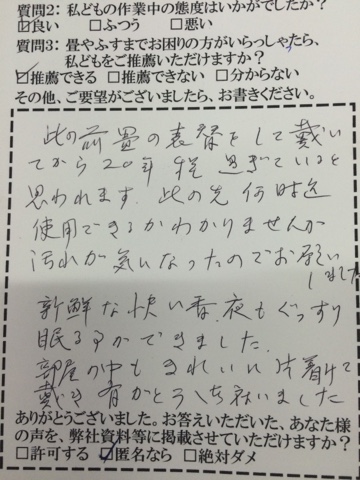 質問2: 私どもの作業中の態度はいかがでしたか?
☑良い □ふつう □悪い
質問3: 畳やふすまでお困りの方がいらっしゃったら、
私どもをご推薦いただけますか?
☑推薦できる □推薦できない □分からない
その他、ご要望がございましたら、お書きください。
此の前畳の表替をして戴い
てから20年程過ぎていると
思われます。此の先何時迄
使用できるかわかりませんが
汚れが気になったのでお願い
しました
新鮮な快い香、夜もぐっすり
眠る事ができました。
部屋の中もきれいに片着けて
戴き有がとうございました
ありがとうございました。お答えいただいた、あなた様
の声を、弊社資料等に掲載させていただけますか?
□許可する ☑匿名なら □絶対ダメ